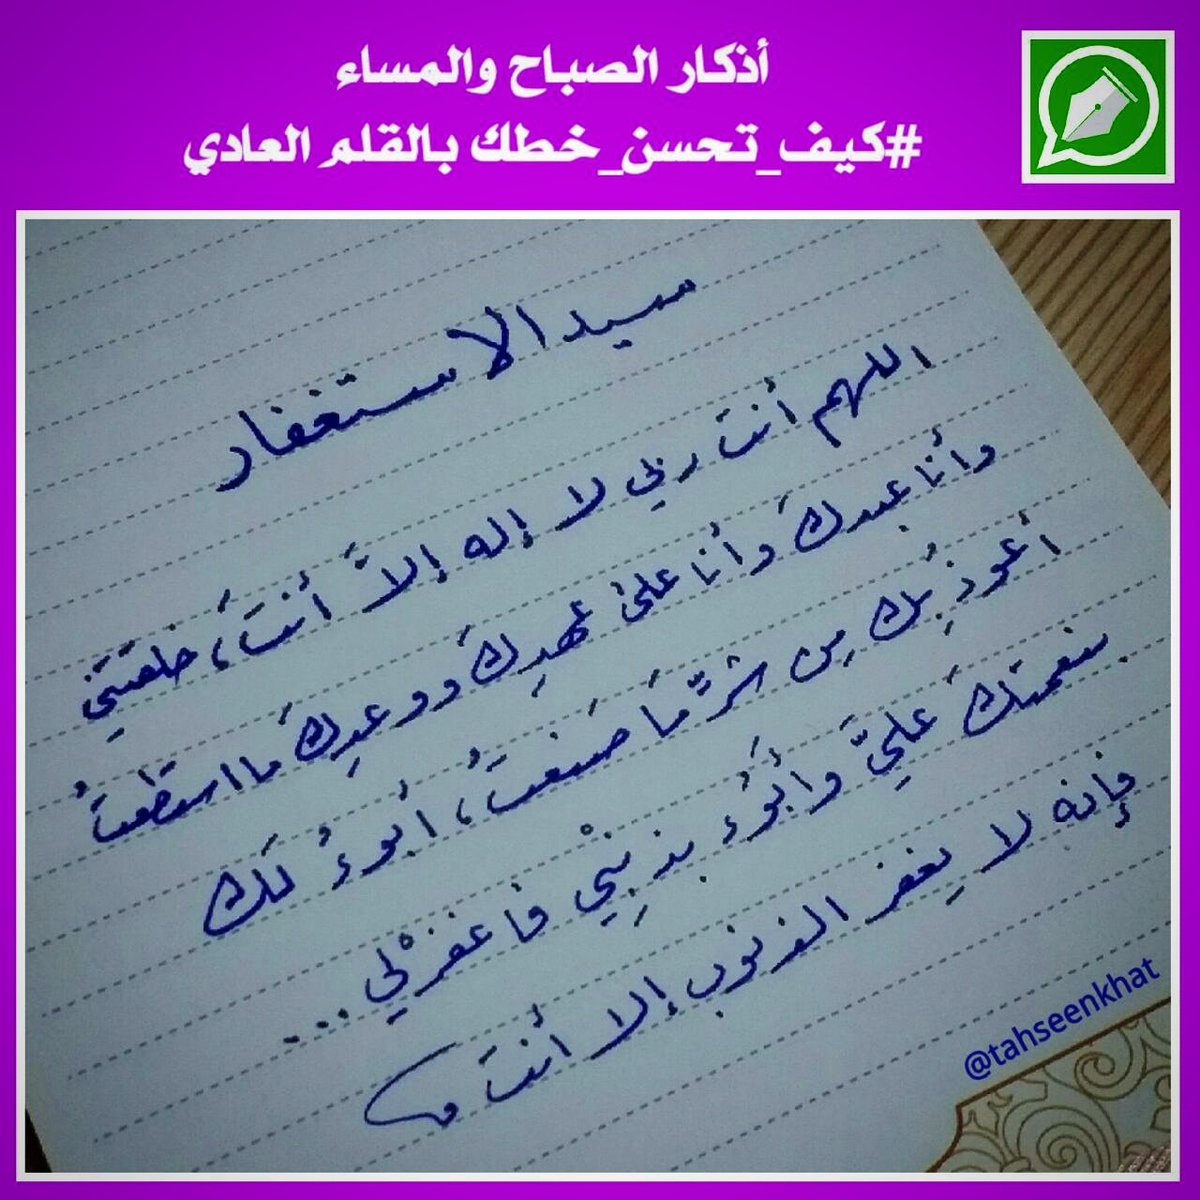 أذكار الصباح والمساء
#كيف_تحسن_خطك بالقلم العادي
سيد الاستغفار
اللهم أنت ربي لا إله إلاَّ أنتَ، خلقتَني
وأنا عبدكَ وأنا على عهدِكَ ووعدِكَ ما استطعتُ
أعوذُ بِك مِن شرِّ مَا صَنعتُ، أبوءُ لَك
بنعمتك عَليَّ وأَبُوُء بذنبِيْ فاغفرْلي ...
فإنه لا يغفر الذنوب إلا أنتَ
@tahseenkhat